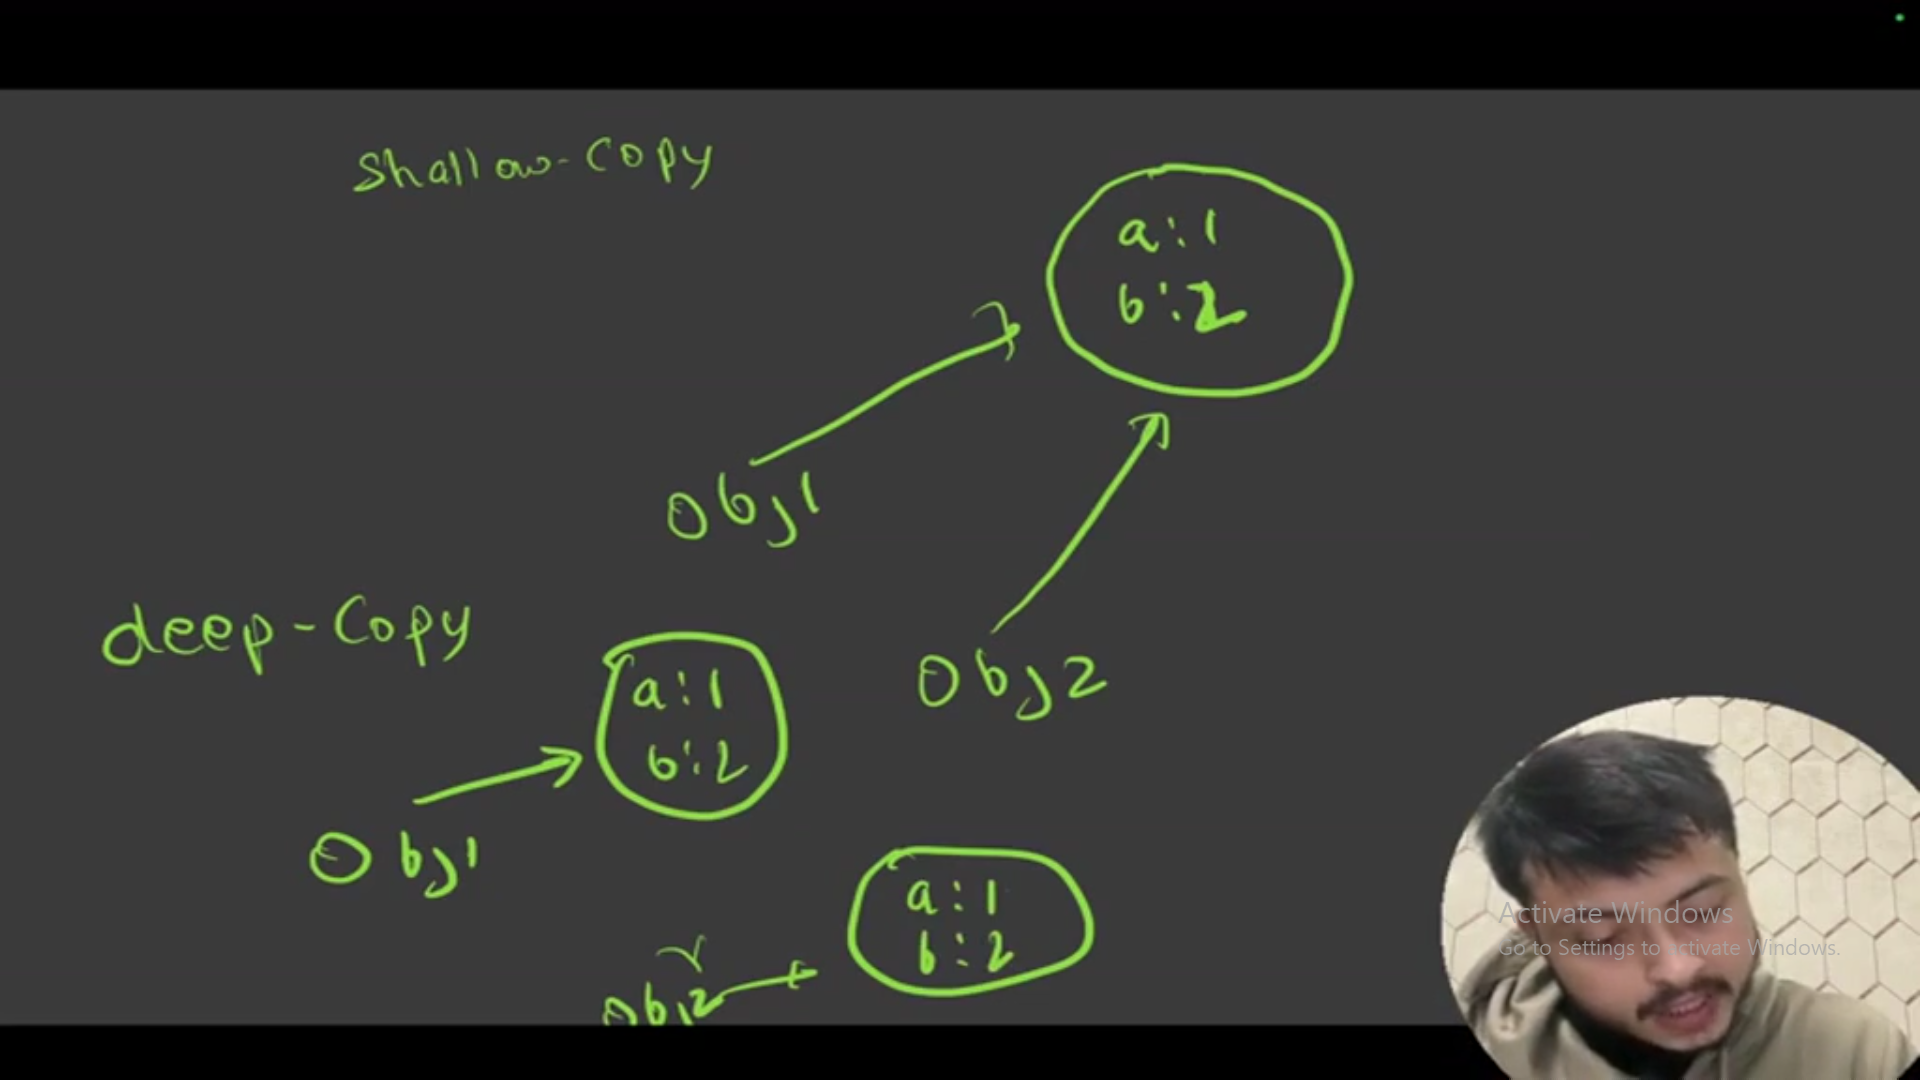 Shallow-Copy
a:1
b:2
Obj1
Obj2
deep-Copy
a:1
b:2
Obj1
a:1
b:2
Obj2
Activate Windows
Go to Settings to activate Windows.